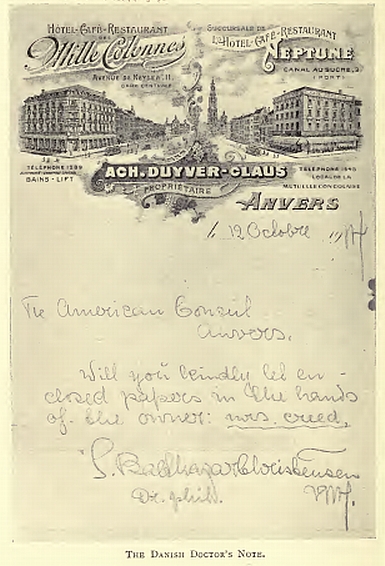 HÔTEL-CAFÉ-RESTAURANT
DES
Mille Colonnes
AVENUE DE KEYSER, 11.
GARE CENTRALE
SUCCURSALE DE
L'HÔTEL-CAFÉ-RESTAURANT
NEPTUNE
CANAL AU SUCRE, 3
(PORT)
TÉLÉPHONE 1299
BAINS - LIFT
ACH. DUYVER-CLAUS
PROPRIÉTAIRE
TÉLÉPHONE 1540
LOCAL DE LA
MUTUELLE CONGOLAISE
ANVERS
12 Octobre
The American Consul
Anvers.
Will you kindly let en-
closed papers in the hands
of the owner: mrs. creed.
S. Balthazar Christensen
Dr. phil.
THE DANISH DOCTOR'S NOTE.